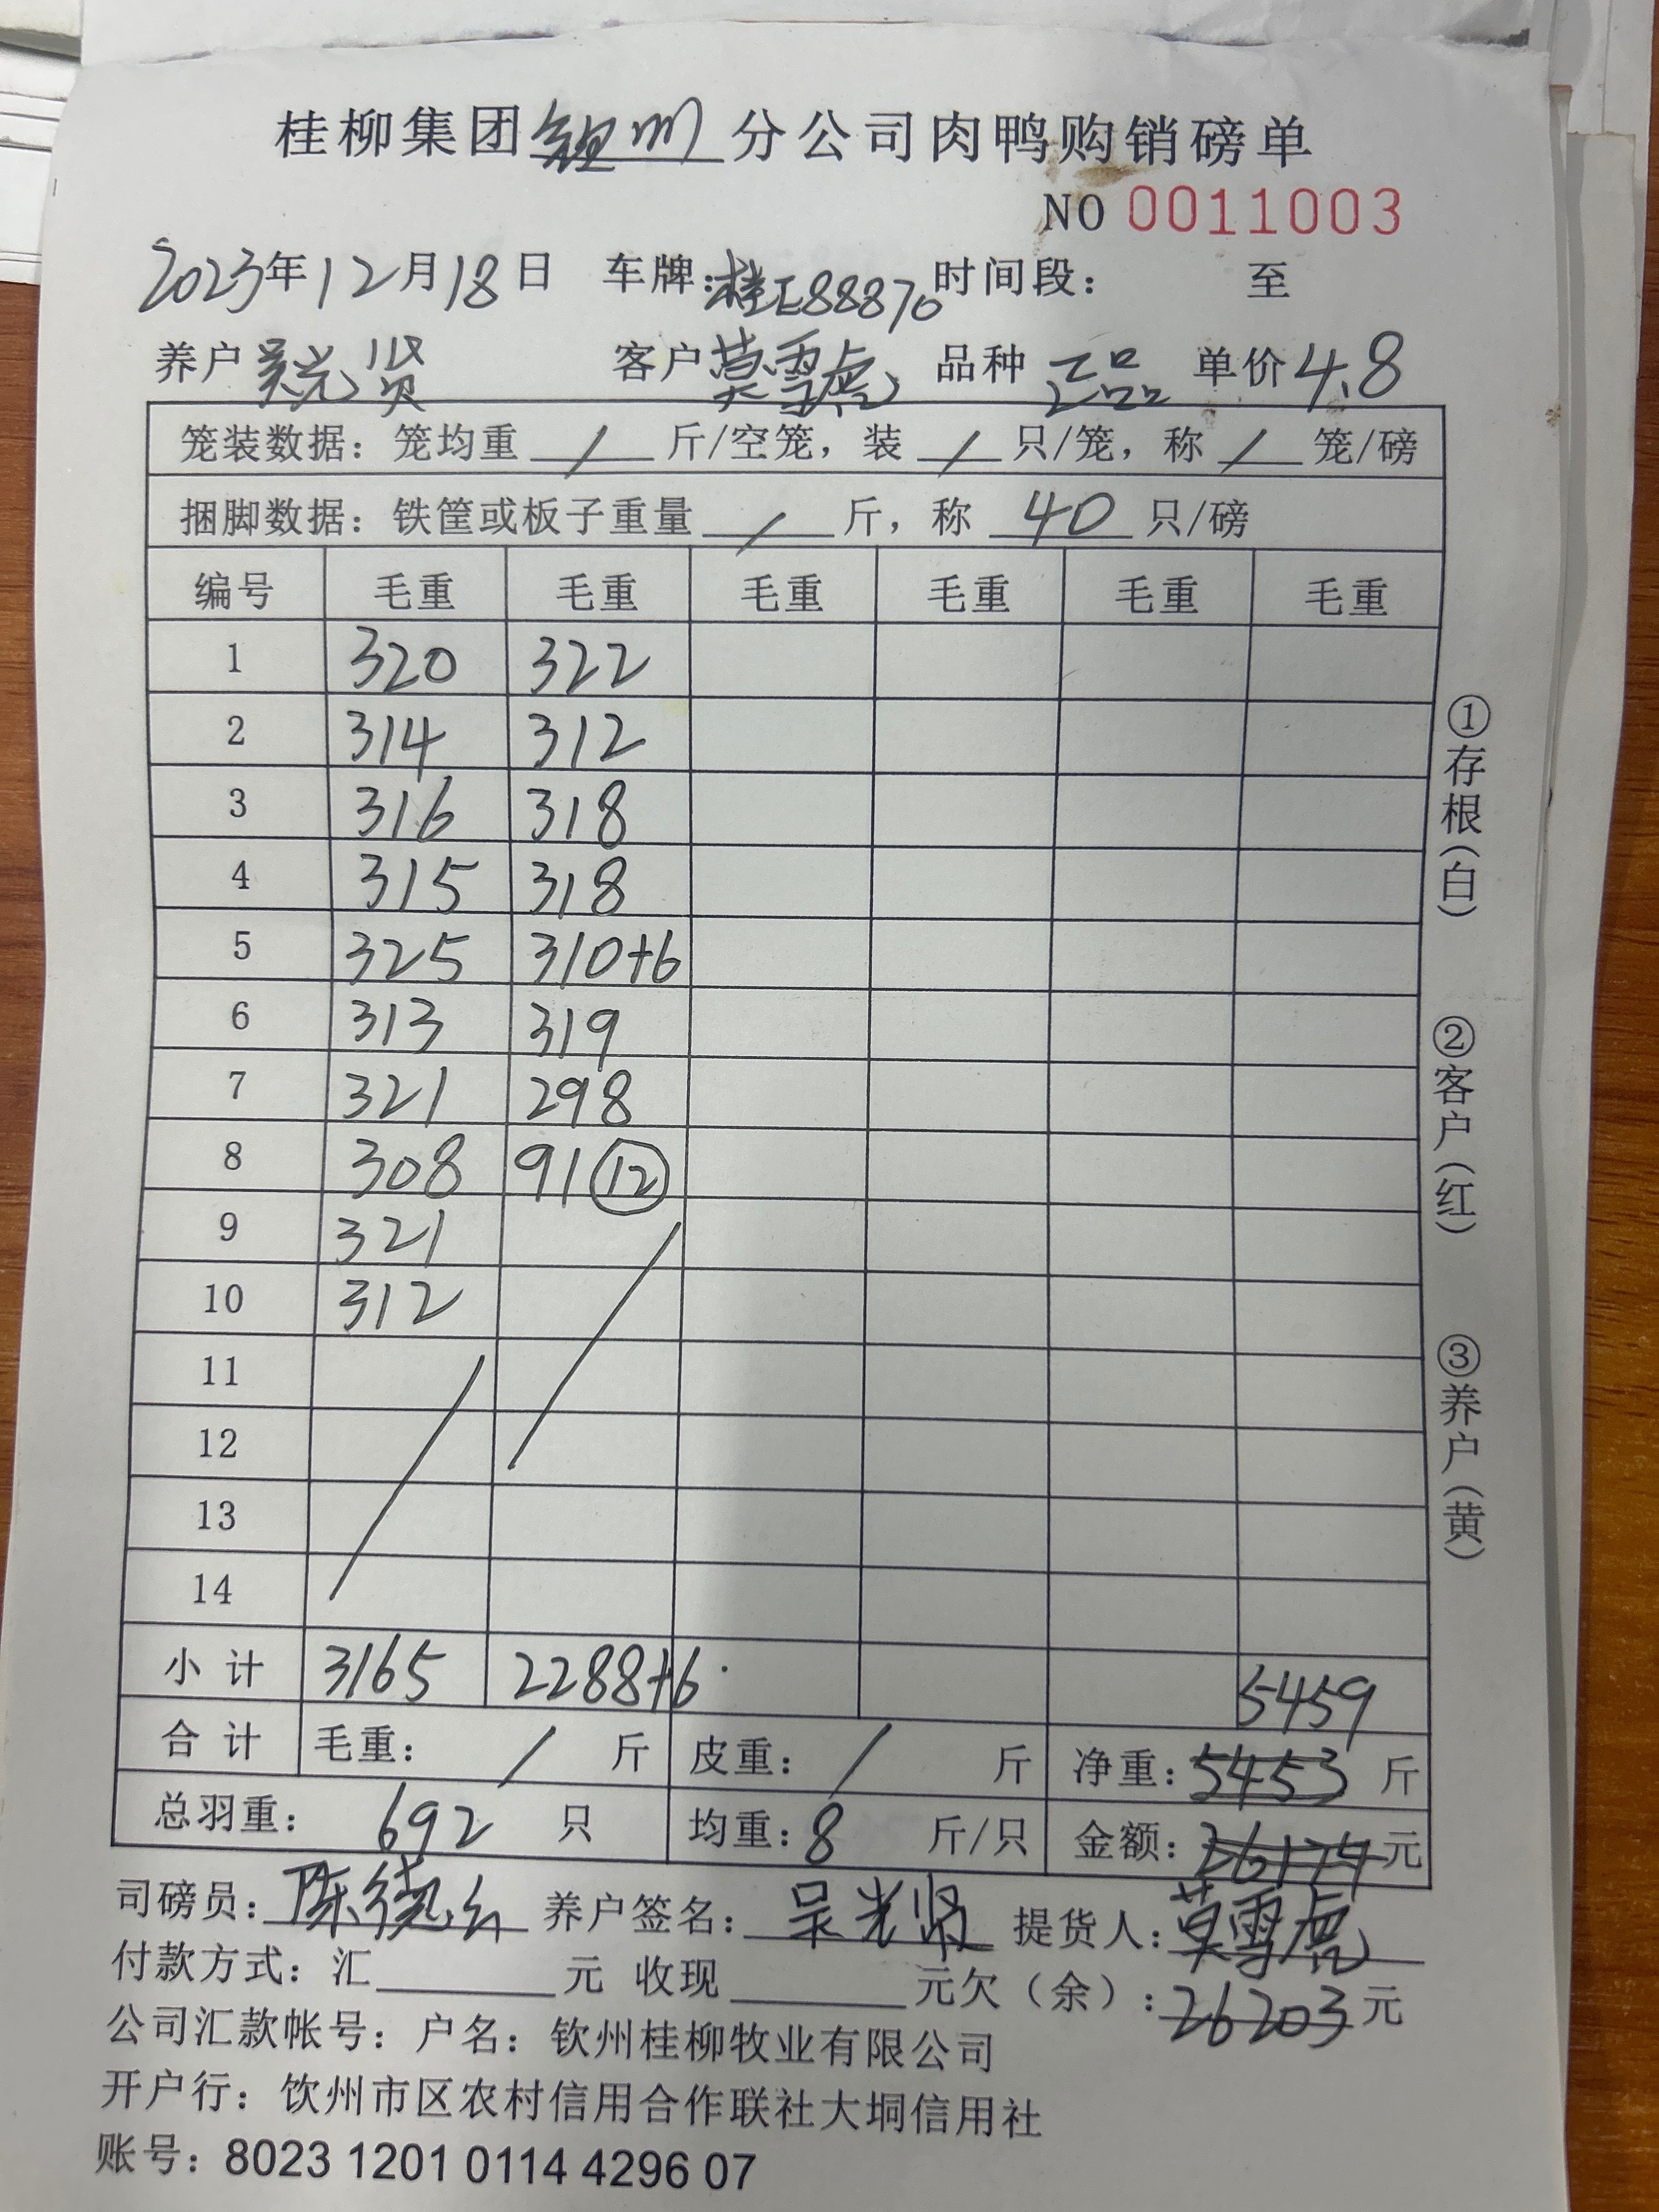 桂柳集团钦州分公司肉鸭购销磅单
NO 0011003
2023年12月18日 车牌:桂E88870 时间段: 至
养户 吴光贤 客户 莫雪虎 品种 正品 单价 4.8
笼装数据: 笼均重 / 斤/空笼, 装 / 只/笼, 称 / 笼/磅
捆脚数据: 铁筐或板子重量 / 斤, 称 40 只/磅
编号 毛重 毛重 毛重 毛重 毛重 毛重
1 320 322
2 314 312
3 316 318
4 315 318
5 325 310+6
6 313 319
7 321 298
8 308 91 ⑫
9 321
10 312
11
12
13
14
小计 3165 2288+6 5459
合计 毛重: / 斤 皮重: / 斤 净重: 5453 斤
总羽重: 692 只 均重: 8 斤/只 金额: 26174 元
司磅员: 陈 养户签名: 吴光贤 提货人: 莫雪虎
付款方式: 汇 元 收现 元 欠(余): 26203 元
公司汇款帐号: 户名: 钦州桂柳牧业有限公司
开户行: 钦州市区农村信用合作联社大垌信用社
账号: 8023 1201 0114 4296 07
①存根(白)
②客户(红)
③养户(黄)